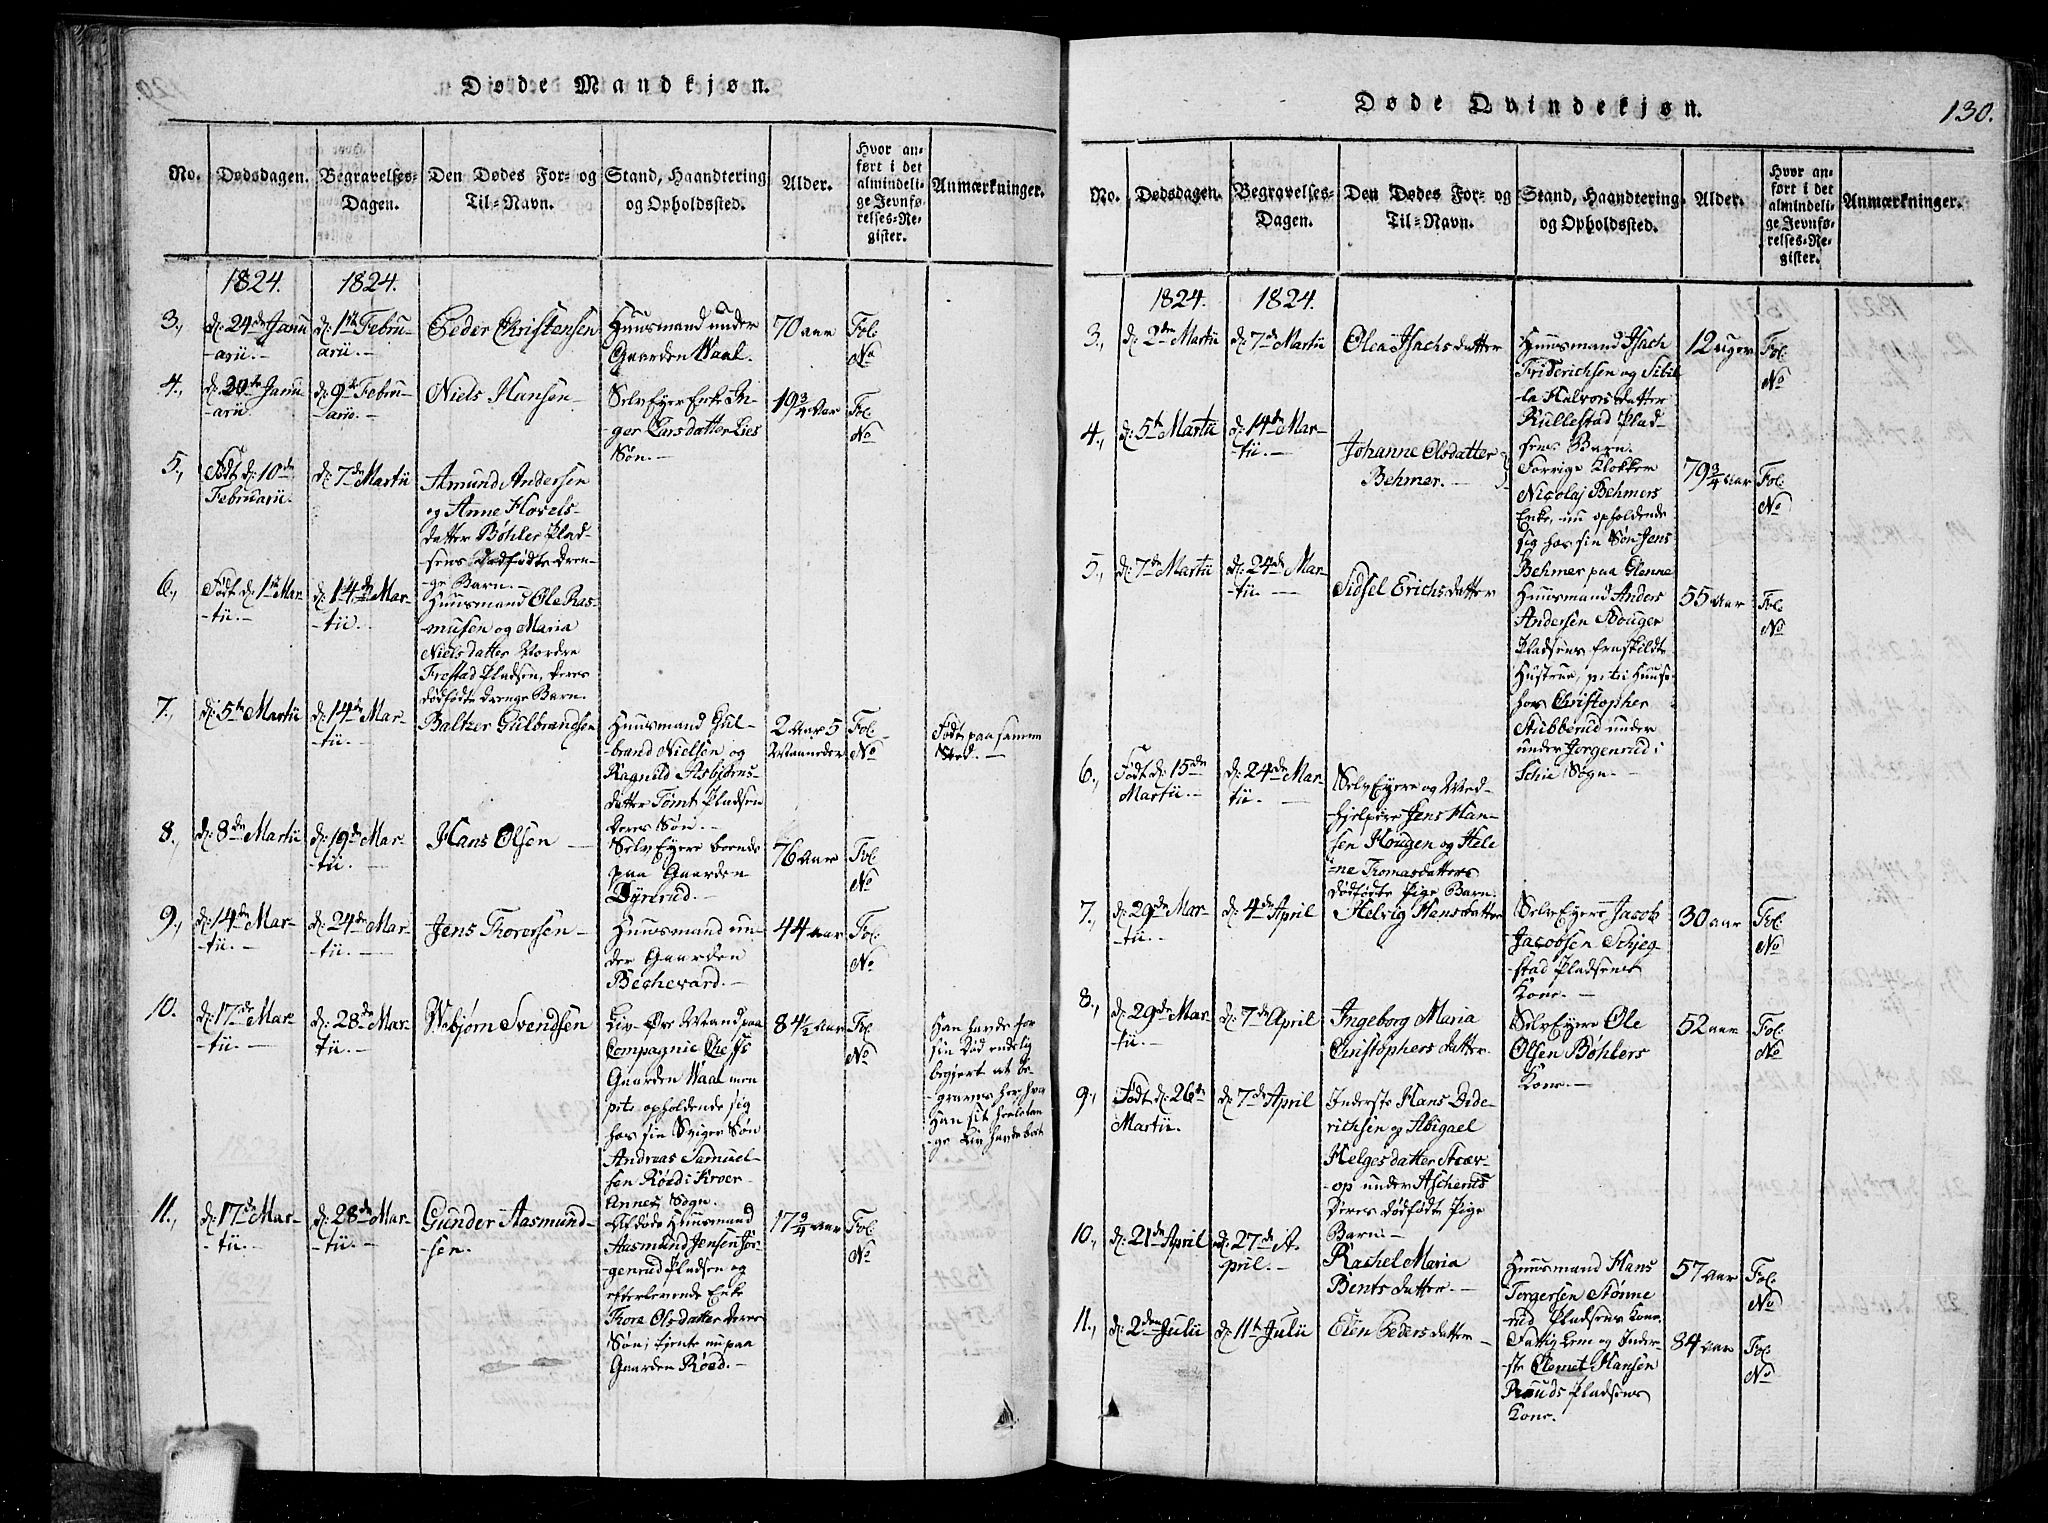 Døde Mandkjøn.
No.
Dødsdagen.
Begravelses-
Dagen.
Den Dødes For- og
Til-Navn.
Stand, Haandtering
og Opholdssted.
Alder.
Hvor an-
ført i det
almindeli-
ge Jevnfø-
relses-Re-
gister.
Anmærkninger.
1824.
1824.
3.,
d: 24de Janu
-arii.-
d: 1ste Febru-
arii.-
Peder Christensen
Huusmand under
Gaarden Waal.
70 aar
Fol:
No
4.,
d: 30te Janu
-arii.
d: 9de Febru-
-arii.-
Niels Hansen-
SelvEyer Enke In-
-ger Larsdatter Lies
Søn.-
19 3/4 Aar
Fol:
No
5.,
Født d: 10de
Februarii.
d: 7de Martii
Amund Andersen
og Anne Hovels-
datter Bøhler Plad-
sens Dødfødte Dren-
ge Barn.-
6.,
Født d: 1ste Mar
-tii.-
d: 14de Mar-
-tii.-
Huusmand Ole Ras-
musen og Maria
Nielsdatter Nordre
Frestad Pladsen, deres
dødfødte Drenge Barn.
7.,
d: 5te Martii
d: 14de Mar-
tii.-
Baltzer Gulbrandsen
Huusmand Gul-
brand Nielsen og
Ragnild Asbjørns-
datter Tømt Pladsen
Deres Søn.-
2 Aar 5
Maaneder
Fol:
No
Født paa samme
Sted.-
8.,
d: 8de Martii
d: 19de Mar-
-tii.-
Hans Olsen
SelvEyere boende
paa Gaarden
Dyrerud.-
76 aar
Fol:
No
9.,
d: 14de Mar-
-tii.-
d: 24de Mar-
tii.-
Jens Thorersen-
Huusmand un-
der Gaarden
Bechevard.-
44 aar
Fol:
No
10.
d: 17de Mar-
tii.-
d: 28de Mar-
tii.-
Webjørn Svendsen
Compagnie Chefs
Gaarden Waal men
opholdende sig
hos sin Sviger Søn
Andreas Samuel-
sen Røed i Kroer
Annex Sogn.
84 1/2 Aar
Fol:
No
Han havde for
sin Død endelig
begjert at be-
-graves her, hvor
Han sit heele lan-
-ge Liv havde boet
11.,
d: 17de Mar-
-tii.-
d: 28de Mar-
-tii.-
Gunder Aasmund-
sen.-
Afdøde Huusmand
Aasmund Jensen Jør-
-genrud Pladsen og
efterlevende Enke
Thore Olsdatter Deres
Søn, tjente nu paa
Gaarden Røed.-
17 3/4 aar
Fol:
No
Døde Qvindekjøn.
130.
No.
Dødsdagen.
Begravelses-
Dagen.
Den Dødes For- og
Til-Navn.
Stand, Haandtering
og Opholdssted.
Alder.
Hvor an-
ført i det
almindeli-
ge Jevnfø-
relses-Re-
gister.
Anmærkninger.
1824.
1824.
3.,
d: 2den Martii
d: 7de Martii
Olea Isachsdatter
Huusmand Isach
Friderichsen og Sibil-
la Halvorsdatter
Rullestad Plad-
sens Barn.
12 uger
Fol:
No
4.,
d: 5te Martii
d: 14de Mar-
-tii.-
Johanne Olsdatter
Behmer.-
Forrige Klokker
Nicolaj Behmers
Enke, nu opholdende
sig hos sin Søn Jens
Behmer paa Glenne
79 3/4 aar
Fol:
No
5.,
d: 7de Martii
d: 24de Mar-
-tii.-
Sidsel Erichsdatter
Huusmand Anders
Andersen Houger
Pladsens fraskildte
Hustrue,
hos Christopher
Stubberud under
under Jørgenrud i
Schie Sogn.-
55 aar
Fol:
No
6.,
Født d: 15de
Martii.-
d: 24de Mar-
tii.-
SelvEyere og Med-
hjelpere Jens Han-
sen Hougen og Hele-
=ne Tromasdatters
dødfødte Pige Barn.
7.,
d: 29de Mar-
-tii.-
d: 4de April
Helvig Hansdatter
SelvEyere Jacob
Jacobsen Schjeg-
-stad Pladsens
Kone.-
30 aar
Fol:
No
8.,
d: 29de Mar-
tii.-
d: 7de April
Ingeborg Maria
Christophersdatter.
SelvEyere Ole
Olsen Bøhlers
Kone.-
52 aar
Fol:
No
9.,
Født d: 26de
Martii.
d: 7de April
Inderste Hans Dide-
richsen og Abigael
Helgesdatter Stær-
-op under Ascherud
Deres dødfødte Pige
Barn.-
10.,
d: 21de April
d: 27de A-
pril.-
Rachel Maria
Bentsdatter.-
Huusmand Hans
Torgersen Stønne
rud Pladsens Kone.
57 aar
Fol:
No
11.,
d: 2den Julii
d: 11te Julii
Elen Pedersdatter-
Fattig Lem og Inder-
-ste Clemet Hansen
Pladsens
Kone.
84 aar
Fol:
No